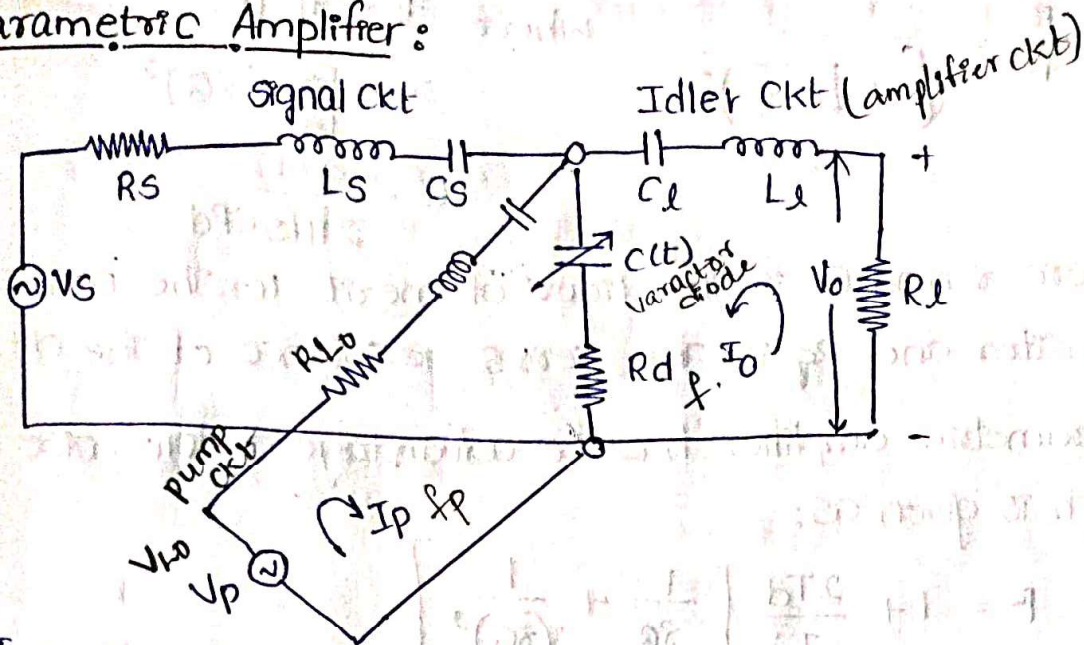 arametric Amplifier :
Signal Ckt
Idler Ckt (amplifier ckt)
RS
LS
CS
Cl
Ll
+
VS
C(t)
varactor
diode
Vo
Rl
RLo
Rd
f. Io
-
pump
ckt
Ip fp
VLo
Vp